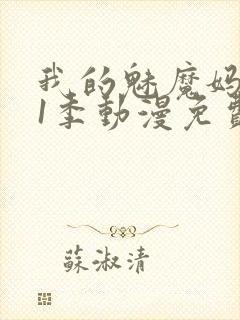 我的魅魔妈
1季動漫免費
蘇淑清